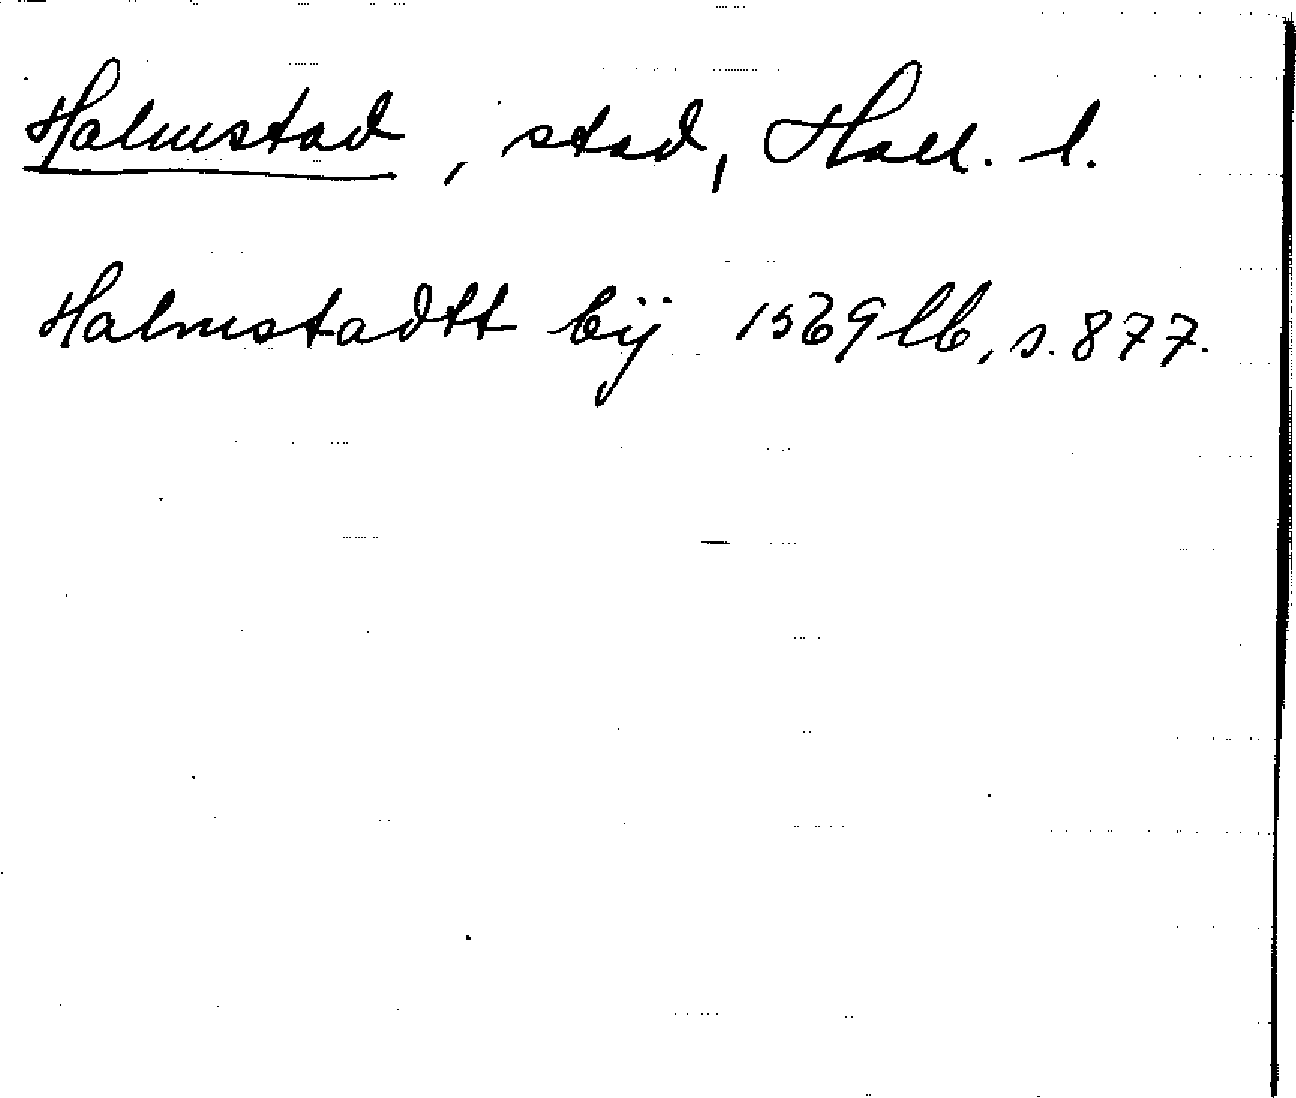 Halmstad, stad, Hall. l.
Halmstadtt bÿ 1569 lb, s. 877.